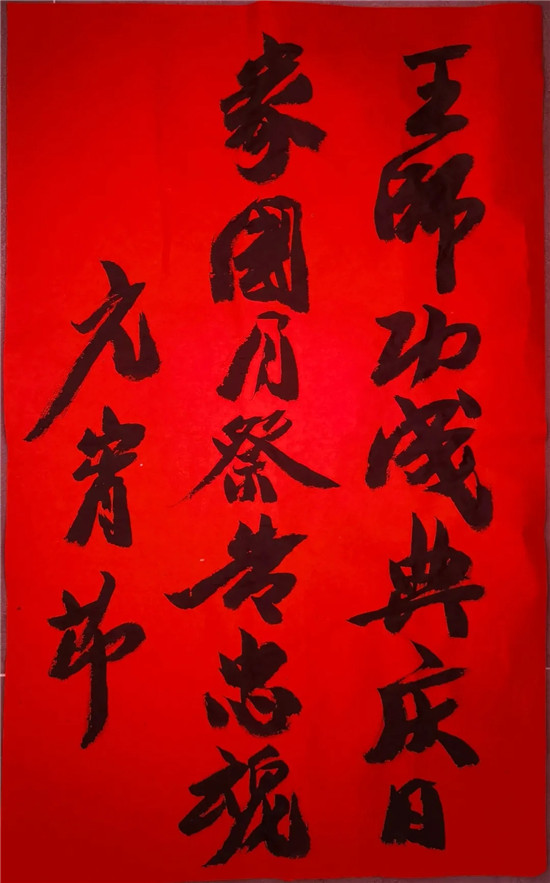 王师功成典庆日
家团月祭告忠魂
元宵节